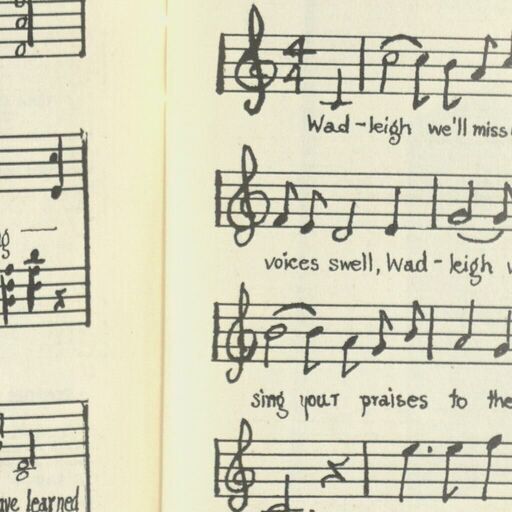 learned
4
4
Wad-leigh we'll miss
voices swell, Wad-leigh
sing your praises to the